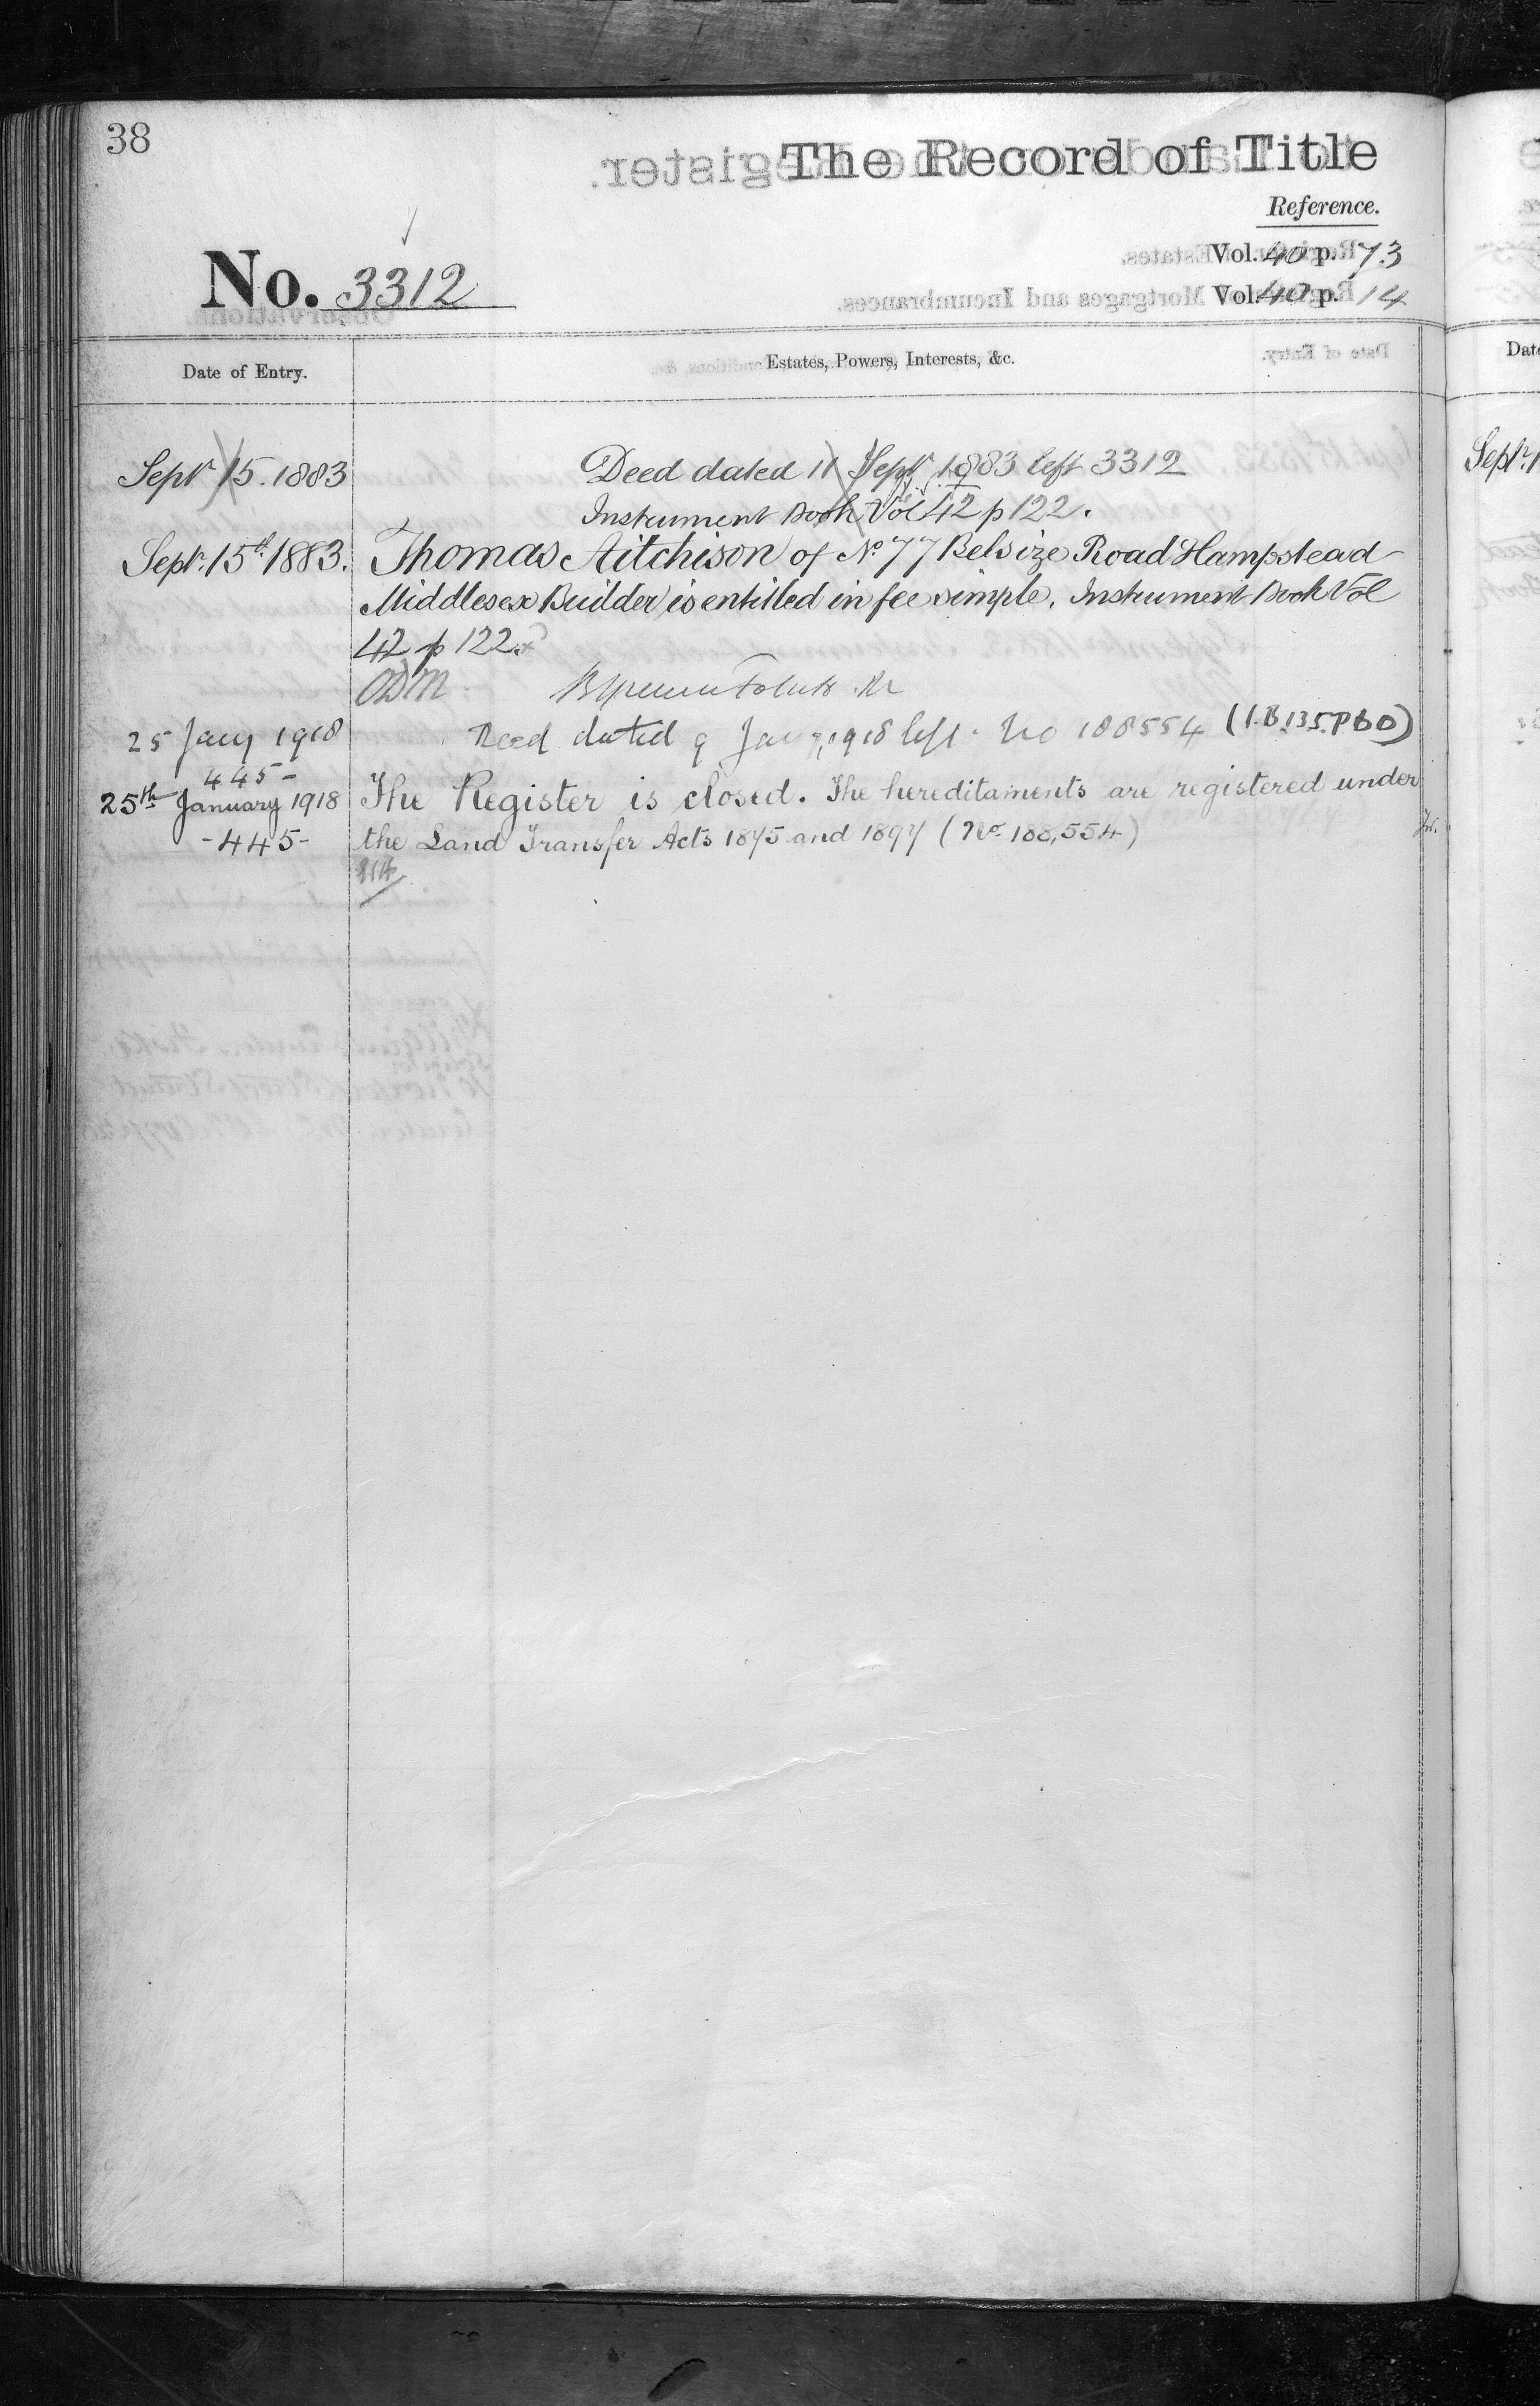 38
The Record of Title
Reference.
Vol. 40 p. 73
No. 3312
Vol. 40 p. 14
Date of Entry.
Estates, Powers, Interests, &c.
Date
Septr 15. 1883
Deed dated 11 Septr 1883 left 3312
Instrument Book Vol 42 p 122.
Septr. 15th 1883.
Thomas Aitchison of No. 77 Belsize Road Hampstead
Middlesex Builder is entitled in fee simple. Instrument Book Vol
42 p 122.
ODM
25 Jany 1918
Deed dated 9 Jany 1918 left. No 188554 (I.B.135.P60)
445-
25th January 1918
The Register is closed. The hereditaments are registered under
-445-
the Land Transfer Acts 1875 and 1897 (No. 188,554)
Septr. 1